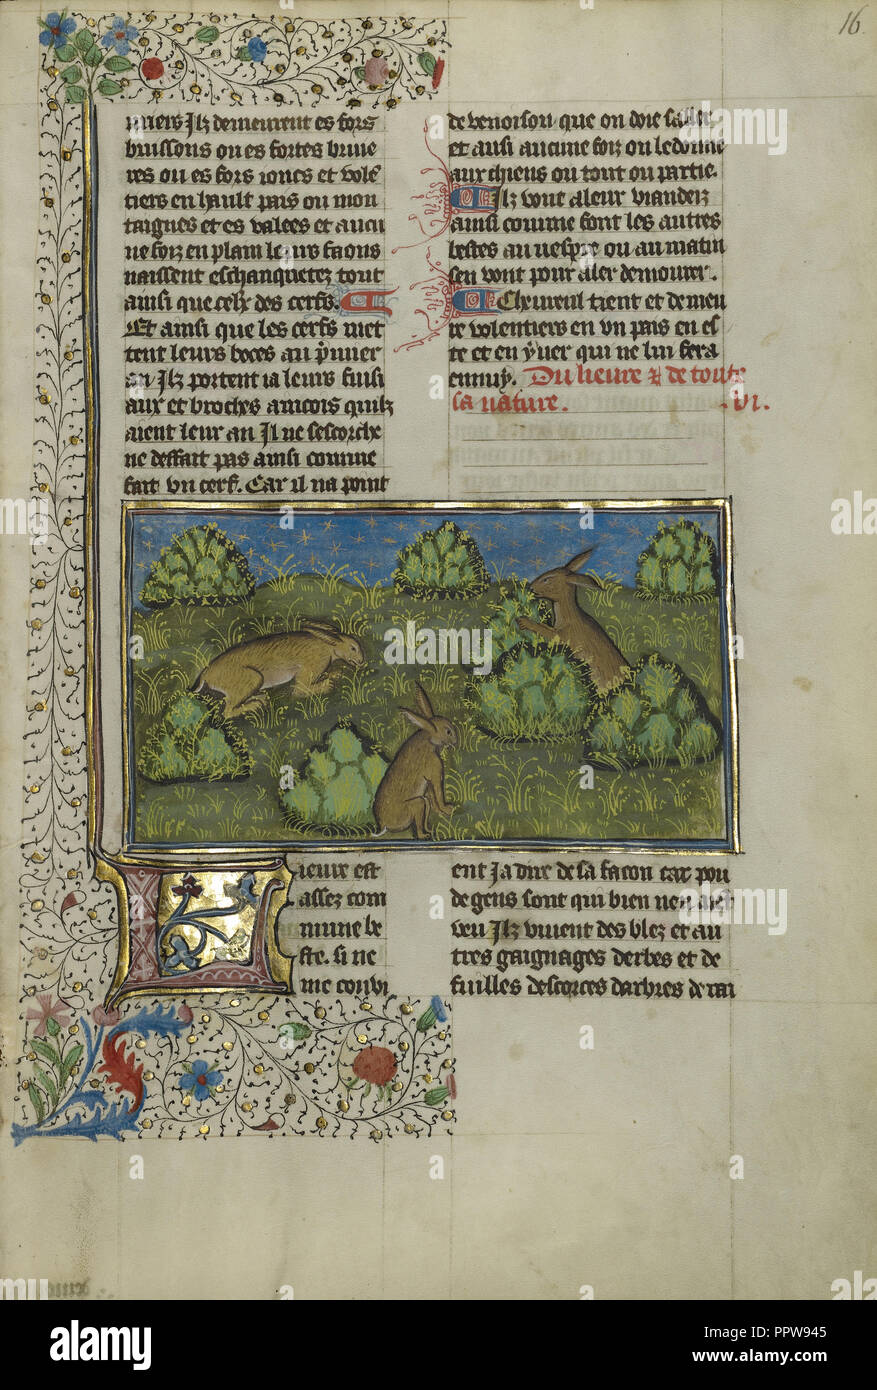 16
niers Ilz demeurent es fors
buissons ou es fortes bruie
res ou es fors ioncs et volē
tiers en hault pais ou mon
taignes et es valees et aucu
ne foiz en plain leurs faons
naissent eschanquetez tout
ainsi que celx des cerfs.
Et ainsi que les cerfs met
tent leurs boces au p̄mier
an Ilz portent ia leurs fuisi
aux et broches aincois quilz
aient leur an Il ne sescorche
ne deffait pas ainsi comme
fait vn cerf. Car il na point
de venoison que on doie saller
et ausi aucune foiz on le donne
aux chiens ou tout ou partie.
Ilz vont a leur viandeiz
ainsi comme font les autres
bestes au uespre ou au matin
sen vont pour aler demourer.
Cheureul tient et demeu
re volentiers en vn pais en es
te et en ẏuer qui ne lui fera
ennuẏ. Du lieure & de toute
sa nature. .vi.
Lieure est
assez com
mune be
ste. si ne
me convi
ent Ja dire de sa facon car pou
de gens sont qui bien nen aient
veu Ilz viuent des blez et au
tres gaignages derbes et de
fuilles descorces darbres de rai
alamy
Image ID: PPW945
www.alamy.com